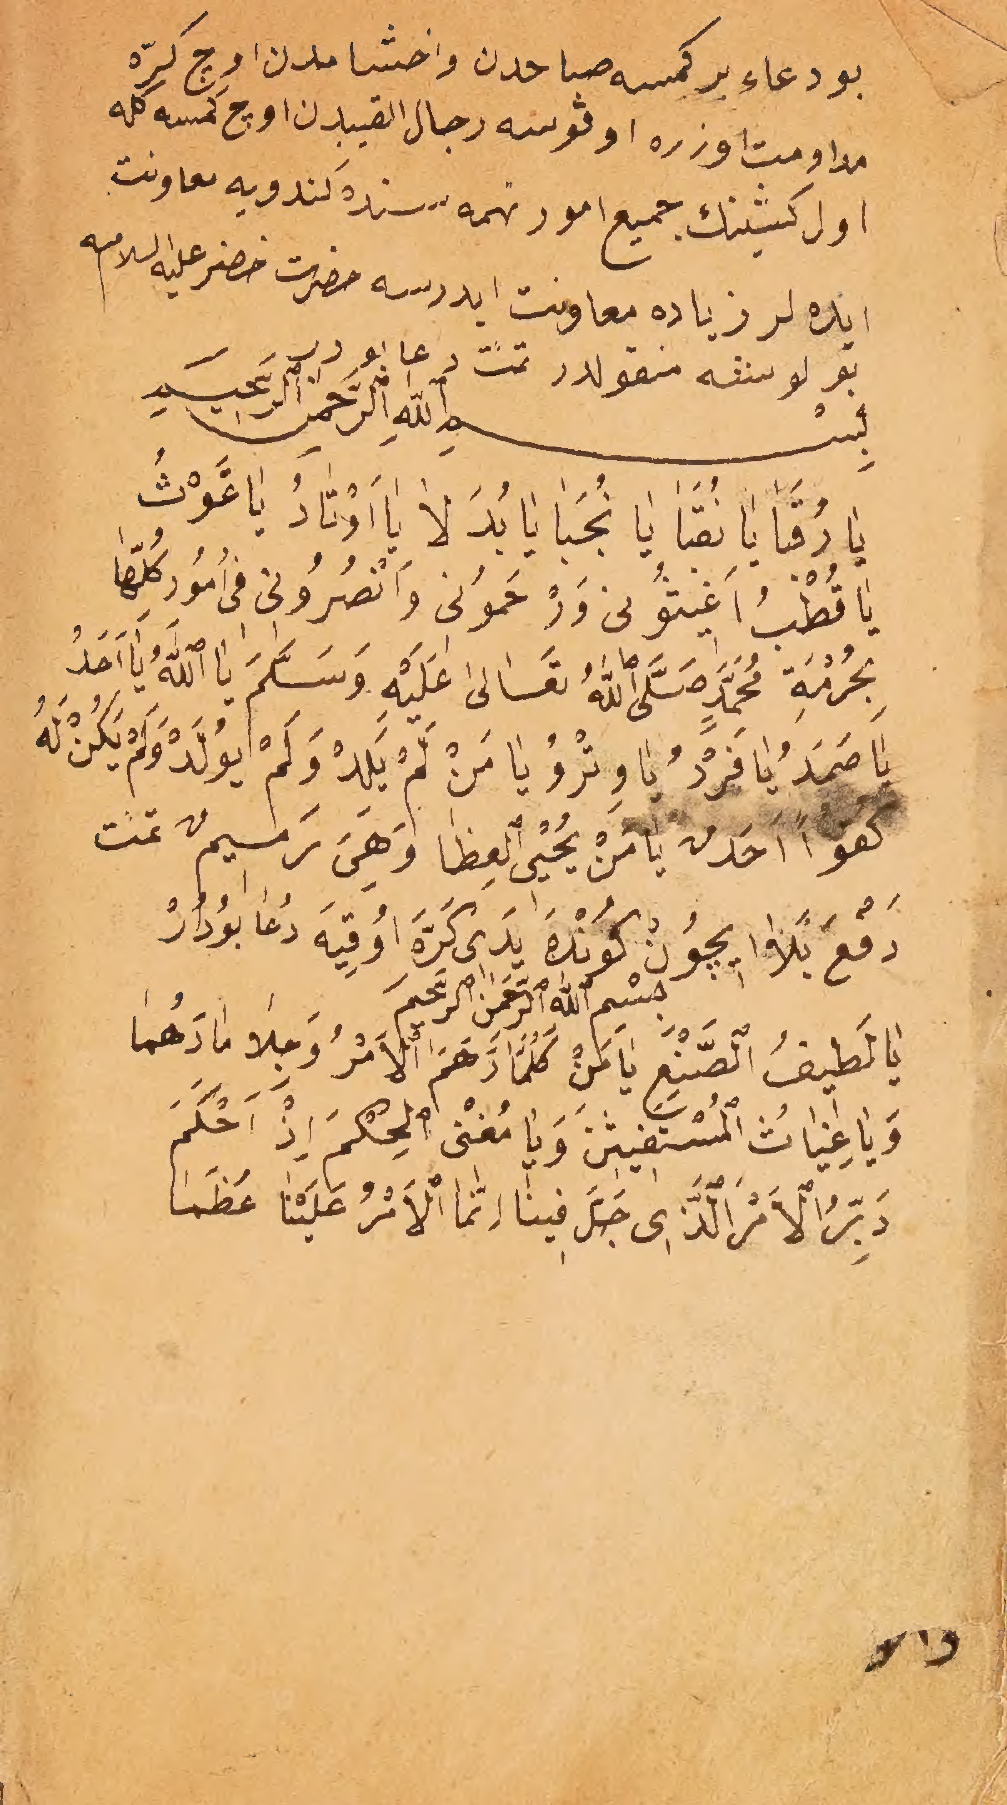 بو دعاء بر كمسه صباحدن واخشامدن اوچ كرّه
مداومت اوزره اوقوسه رجال الغيبدن اوچ كمسه كله
اول كشينك جميع امور مهمه سنده كندويه معاونت
ايده لر زياده معاونت ايدرسه حضرت خضر عليه السلامه
بولوشه منقولدر تمت دعا بودر
بِسْمِ ٱللّٰهِ ٱلرَّحْمٰنِ ٱلرَّحيمِ
يا رُقَبٰا يا نُقَبٰا يا نُجَبٰا يا بُدَلا يا اَوْتٰادُ يا غَوْثُ
يا قُطْبُ اَغيثُونى وَرْحَمُونى وَانْصُرُونى فى اُمُورِ كُلِّهٰا
بِحُرْمَةِ مُحَمَّدٍ صَلَّى ٱللّٰهُ تَعَالىٰ عَلَيْهِ وَسَلَّمَ يا ٱللّٰهُ يٰا اَحَدُ
يٰا صَمَدُ يا فَرْدُ يا وِتْرُ يا مَنْ لَمْ يَلِدْ وَلَمْ يُولَدْ وَلَمْ يَكُنْ لَهُ
كُفُواً اَحَدٌ يا مَنْ يُحْيِى ٱلْعِظٰا وَهِىَ رَمِيمٌ تمت
دَفْعَ بَلَا ايچُونْ كُونْدَه يَدى كَرَّه اوُقِيَه دُعٰا بُودُرْ
بِسْمِ ٱللّٰه ٱلرَّحْمٰنِ ٱلرَّحيم
يا لَطيفُ ٱلصَّنْعِ يٰا مَنْ كُلَّمٰا دَهَمَ ٱلْاَمْرُ وَجَلا مٰا دَهُما
وَيا غِيٰاثُ ٱلْمُسْتَغيثينَ وَيا مُفْنى ٱلْحِكَمَ اِذْ اَحْكَمَ
دَبِّرُ ٱلْاَمْرَ ٱلَّذى جَلَّ فينٰا اِنَّمٰا ٱلْاَمْرُ عَلَيْنٰا عَظَمٰا